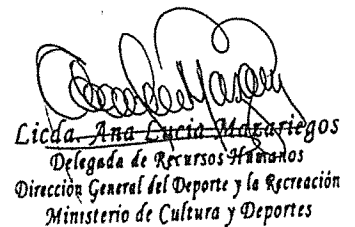 Licda. Ana Lucia Mazariegos
Delegada de Recursos Humanos
Dirección General del Deporte y la Recreación
Ministerio de Cultura y Deportes